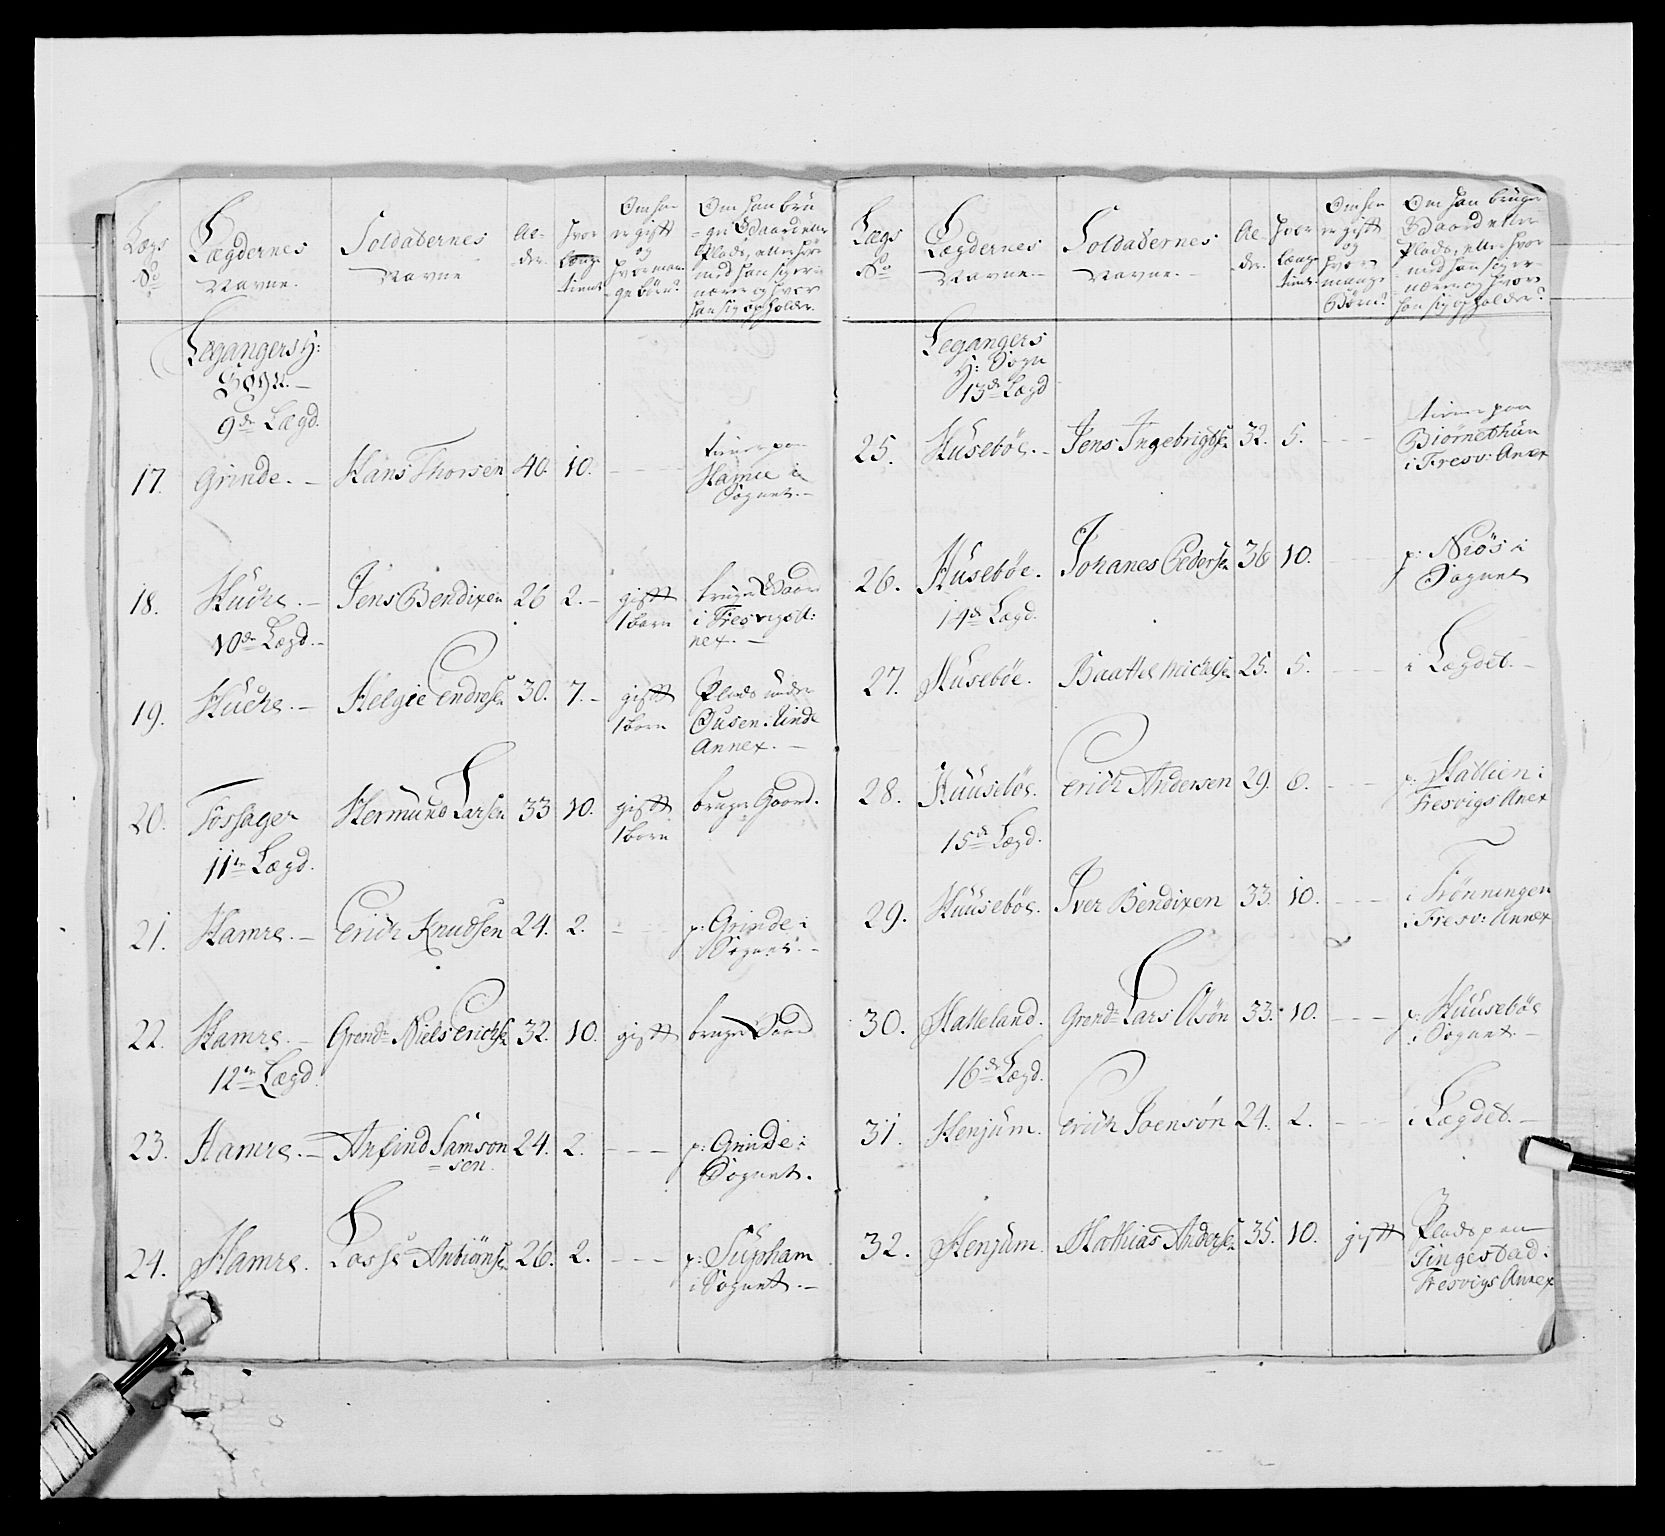 Lægs
No
Lægdernes
Navne.
Soldaternes
Navne
Al-
der.
hvor
længe
tient
Om han
er gift
og
hvor man
ge børn?
Om han bru
=ger Gaard eller
Plads, eller hvor
med han sig er-
nærer og hvor
han sig opholder.
Legangers H:
Sogn.
9de Lægd.
17. Grinde. Hans Thorsen 40. 10. - - - tiener paa
Hamre i
Sognet.
18. Hucke. Jens Bendixen 26 2. gift bruger Gaard
1 barn i Fresvigs A:
nex.
10de Lægd.
19. Hucke. Helgie Endresen 30. 7. gift Plads under
1 barn Ousen: Tinde
Annex.
20. Fossager Hermund Larsen 33 10. gift bruger Gaard.
1 barn
11te Lægd.
21. Hamre. Erich Knudsen 24. 2. - - - p: Grinde i
Sognet.
22. Hamre. Grend: Niels Erichs: 32. 10. gift bruger Gaard
12te Lægd.
23. Hamre. Anfind Samson 24. 2. - - - p: Grinde i
=sen. Sognet.
24. Hamre. Lasse Anbiørns: 26. 2. - - - p:
i Sognet.
Lægs
No
Lægdernes
Navne.
Soldaternes
Navne.
Al-
der.
hvor
længe
tient.
Om han
er gift
og
hvor
mange
Børn?
Om han bruger
Gaard eller
Plads, eller hvor
med han sig er-
nærer og hvor
han sig opholder?
Legangers
H: Sogn
13de Lægd
25. Husebøe. Jens Ingebrigts: 32. 5. - - - tiener paa
Biørnethun
i Fresv: Anex
26. Husebøe. Johanes Peders: 36 10. - - - p: Niøs i
Sognet
14de Lægd.
27. Husebøe. Baattel Michels: 25. 5. - - - i Lægdet.
28. Huusebøe. Erich Andersen 29. 6. - - - p: Hallien i
Fresvigs Anex
15de Lægd.
29. Huusebøe. Iver Bendixen 33. 10. - - - i Frønningen
i Fresv: Annex
30. Halleland. Grend: Lars Olsøn 33. 10. - - - p: Huusebøe
i Sognet
16de Lægd.
31. Henjum. Erich Svensøn 24. 2. - - - i Lægdet.
32. Henjum. Mathias Anders: 35. 10. gift Plads paa
Tingestad i
Fresvigs Annex